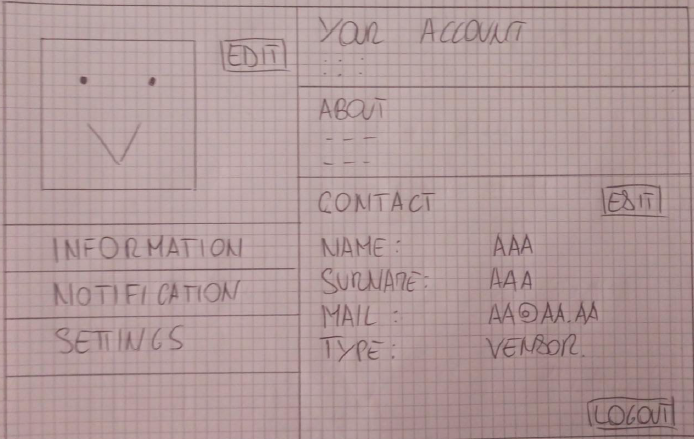 EDIT
INFORMATION
NOTIFICATION
SETTINGS
YOUR ACCOUNT
ABOUT
CONTACT EDIT
NAME: AAA
SURNAME: AAA
MAIL: AA@AA.AA
TYPE: VENDOR.
LOGOUT